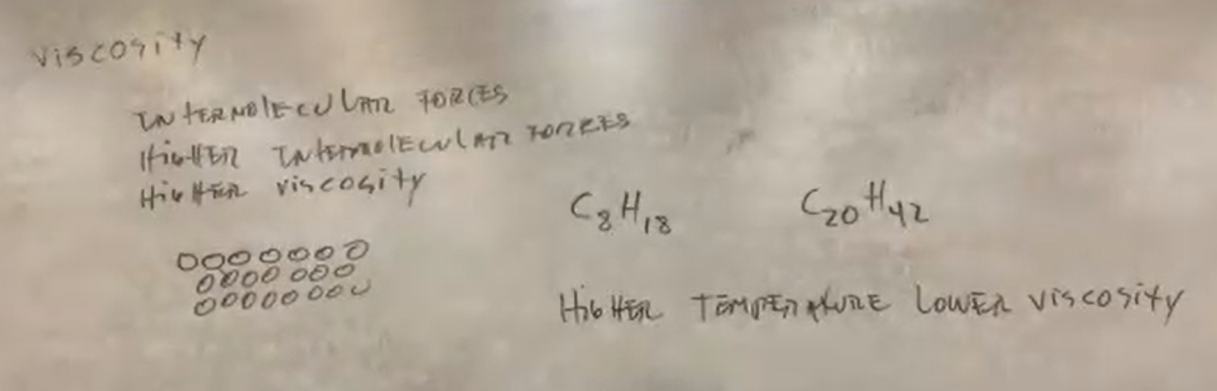 Viscosity
INTERMOlECULAR FORCES
HIGHER INTERMOlECULAR FORCES
HIGHER VISCOSITY
C8H18 C20H42
HIGHER TEMPERATURE LOWER VISCOSITY